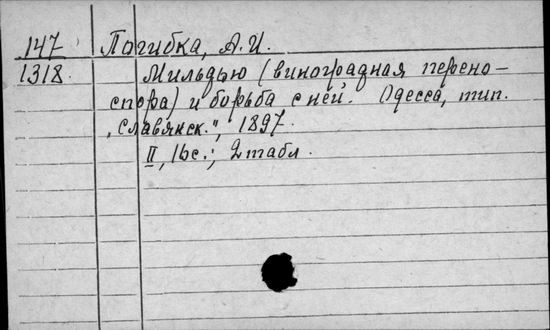 147 Погибка, А.И.
1318. Мильдью (виноградная перено-
спора) и борьба с ней. Одесса, тип.
„Славянск.", 1897.
II, 16с.; 2 табл.